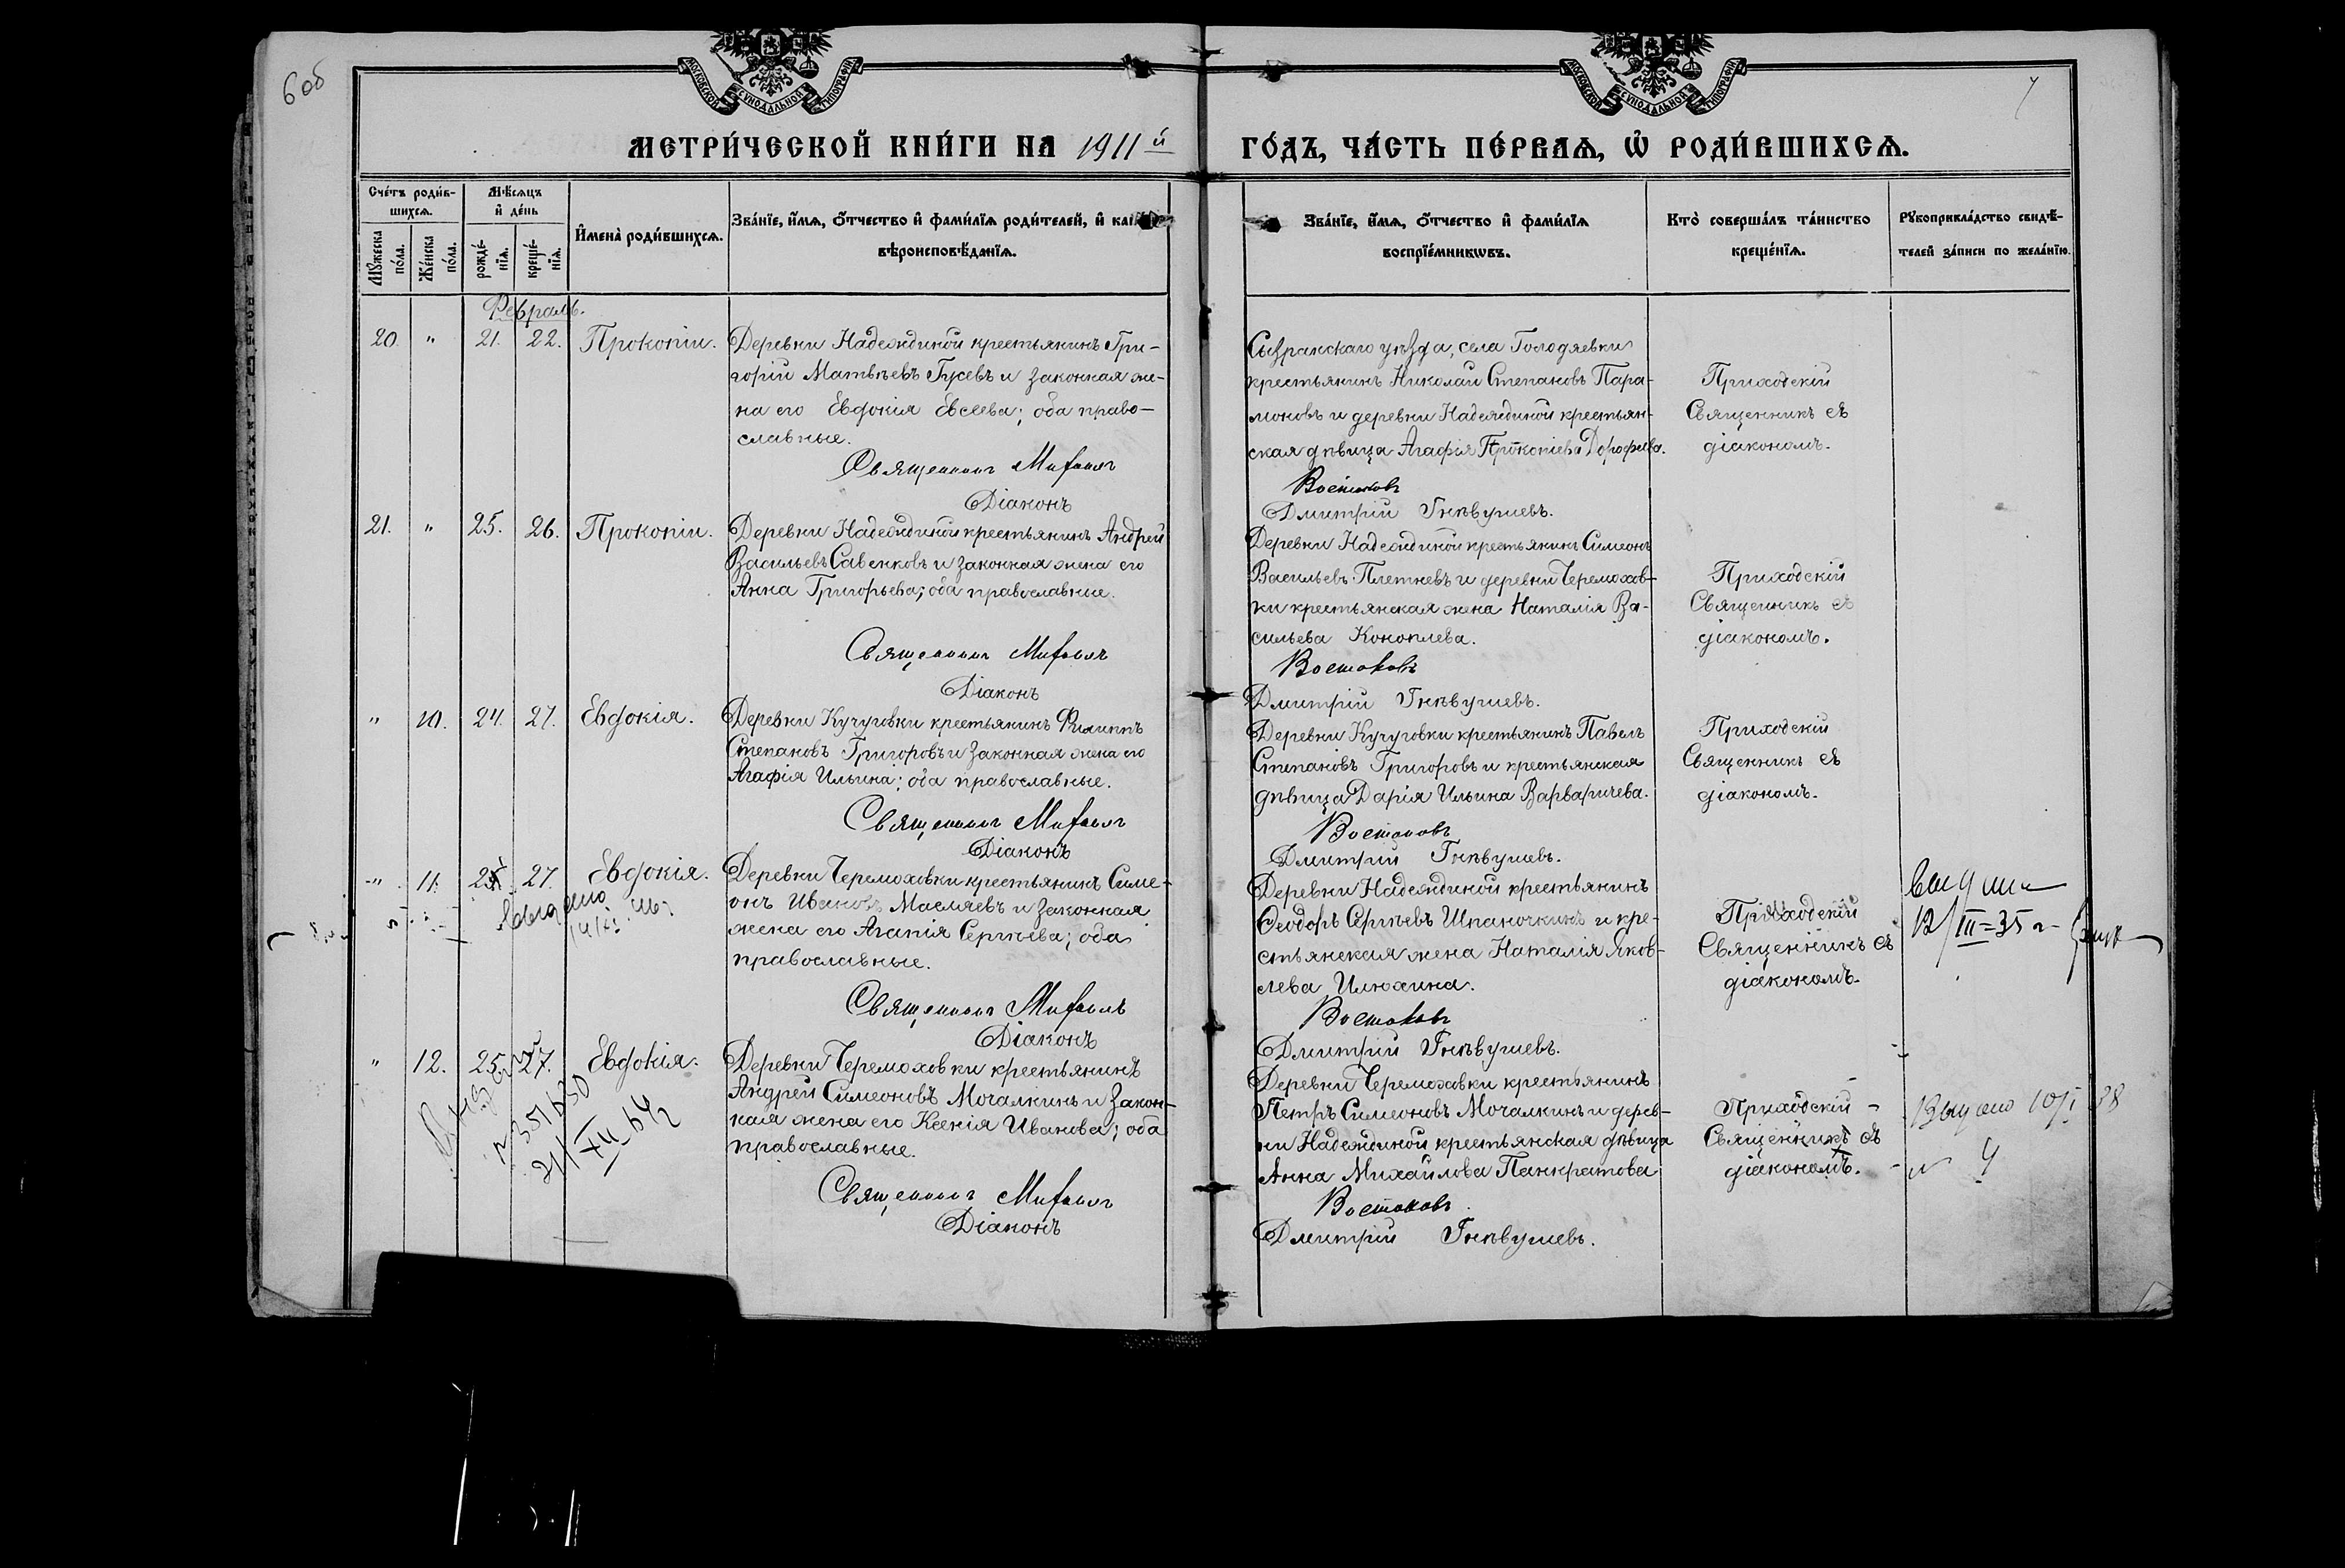 6 об
7
МОСКОВСКОЙ СѴНОДАЛЬНОЙ ТИПОГРАФІИ
МОСКОВСКОЙ СѴНОДАЛЬНОЙ ТИПОГРАФІИ
МЕТРИ́ЧЕСКОЙ КНИ́ГИ НА 1911й
ГО́ДЪ, ЧА́СТЬ ПЕ́РВАѦ, Ѡ҆ РОДИ́ВШИХСѦ.
Сче́тъ роди́в-
шихсѧ.
Мꙋ́жеска
по́ла.
Же́нска
по́ла.
Мѣ́сѧцъ
и҆ де́нь
рожде́-
нїѧ.
креще́-
нїѧ.
И҆мена̀ роди́вшихсѧ.
Зва́нїе, и҆́мѧ, ѻ҆́тчество и҆ фами́лїѧ роди́телей, и҆
вѣроисповѣ́данїѧ.
Зва́нїе, и҆́мѧ, ѻ҆́тчество и҆ фами́лїѧ
воспрїе́мникѡвъ.
Кто̀ соверша́лъ та́инство
креще́нїѧ.
Рꙋкоприкла́дство свидѣ́-
телей за́писи по жела́нїю.
Февраль.
20. " 21. 22. Прокопій.
Деревни Надеждиной крестьянинъ Гри-
горій Матвѣевъ Гусевъ и законная же-
на его Евдокія Евсеева; оба право-
славные.
Священникъ Михаилъ
Діаконъ
Сызранскаго уѣзда, села Голодяевки
крестьянинъ Николай Степановъ Пара-
моновъ и деревни Надеждиной крестьян-
ская дѣвица Агафія Прокопіева Дорофеева.
Востоковъ
Дмитрій Гнѣвушевъ.
Приходскій
Священникъ съ
діакономъ.
21. " 25. 26. Прокопій.
Деревни Надеждиной крестьянинъ Андрей
Васильевъ Савенковъ и законная жена его
Анна Григорьева; оба православные.
Священникъ Михаилъ
Діаконъ
Деревни Надеждиной крестьянинъ Симеонъ
Васильевъ Плетневъ и деревни Черемохов-
ки крестьянская жена Наталія Ва-
сильева Коноплева.
Востоковъ
Дмитрій Гнѣвушевъ.
Приходскій
Священникъ съ
діакономъ.
" 10. 24. 27. Евдокія.
Деревни Кучуговки крестьянинъ Филиппъ
Степановъ Григоровъ и законная жена его
Агафія Ильина; оба православные.
Священникъ Михаилъ
Діаконъ
Деревни Кучуговки крестьянинъ Павелъ
Степановъ Григоровъ и крестьянская
дѣвица Дарія Ильина Варваричева.
Востоковъ
Дмитрій Гнѣвушевъ.
Приходскій
Священникъ съ
діакономъ.
" 11. 27. Евдокія.
Деревни Черемоховки крестьянинъ Симе-
онъ Ивановъ Масляевъ и законная
жена его Агапія Сергѣева; оба
православные.
Священникъ Михаилъ
Діаконъ
Деревни Надеждиной крестьянинъ
Ѳеодоръ Сергѣевъ Шпаночкинъ и кре-
стьянская жена Наталія Яков-
лева Илюхина.
Востоковъ
Дмитрій Гнѣвушевъ.
Приходскій
Священникъ съ
діакономъ.
12/III-35 г
" 12. 25. 27. Евдокія.
№ 351630
Деревни Черемоховки крестьянинъ
Андрей Симеоновъ Мочалкинъ и закон-
ная жена его Ксенія Иванова; оба
православные.
Священникъ Михаилъ
Діаконъ
Деревни Черемоховки крестьянинъ
Петръ Симеоновъ Мочалкинъ и дерев-
ни Надеждиной крестьянская дѣвица
Анна Михайлова Панкратова
Востоковъ
Дмитрій Гнѣвушевъ.
Приходскій
Священникъ съ
діакономъ.
Выдано 10/I 38
№ 4